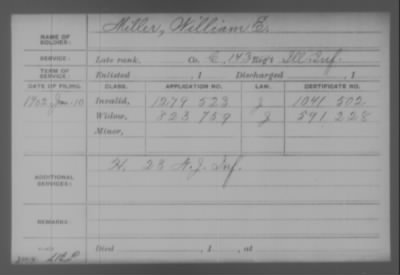 NAME OF SOLDIER: Miller, William E.
SERVICE: Late rank, Co. C, 143 Reg't Ill. Inf.
TERM OF SERVICE: Enlisted , 1 Discharged , 1
DATE OF FILING. CLASS. APPLICATION NO. LAW. CERTIFICATE NO.
1902, Jan. 10 Invalid, 1279 523 J 1041 502
Widow, 823 759 J 591 228
Minor,
ADDITIONAL SERVICES: H. 23 N.J. Inf.
REMARKS:
Died , 1 , at